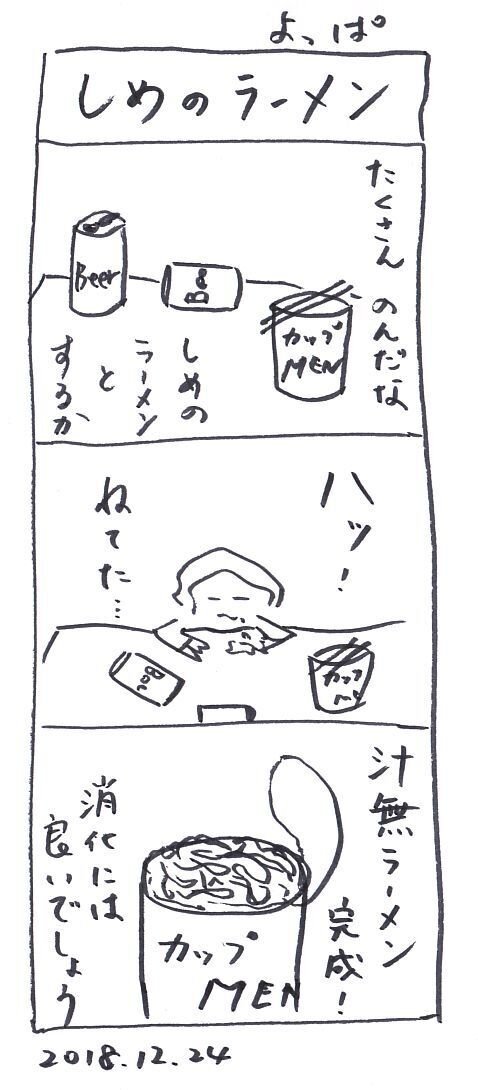 よっぱ
しめのラーメン
たくさん のんだな
Beer
Be
カップ
MEN
しめの
ラーメン
と
するか
ハッ!
ねてた…
カップ
汁無ラーメン
完成!
カップ
MEN
消化には
良いでしょう
2018.12.24